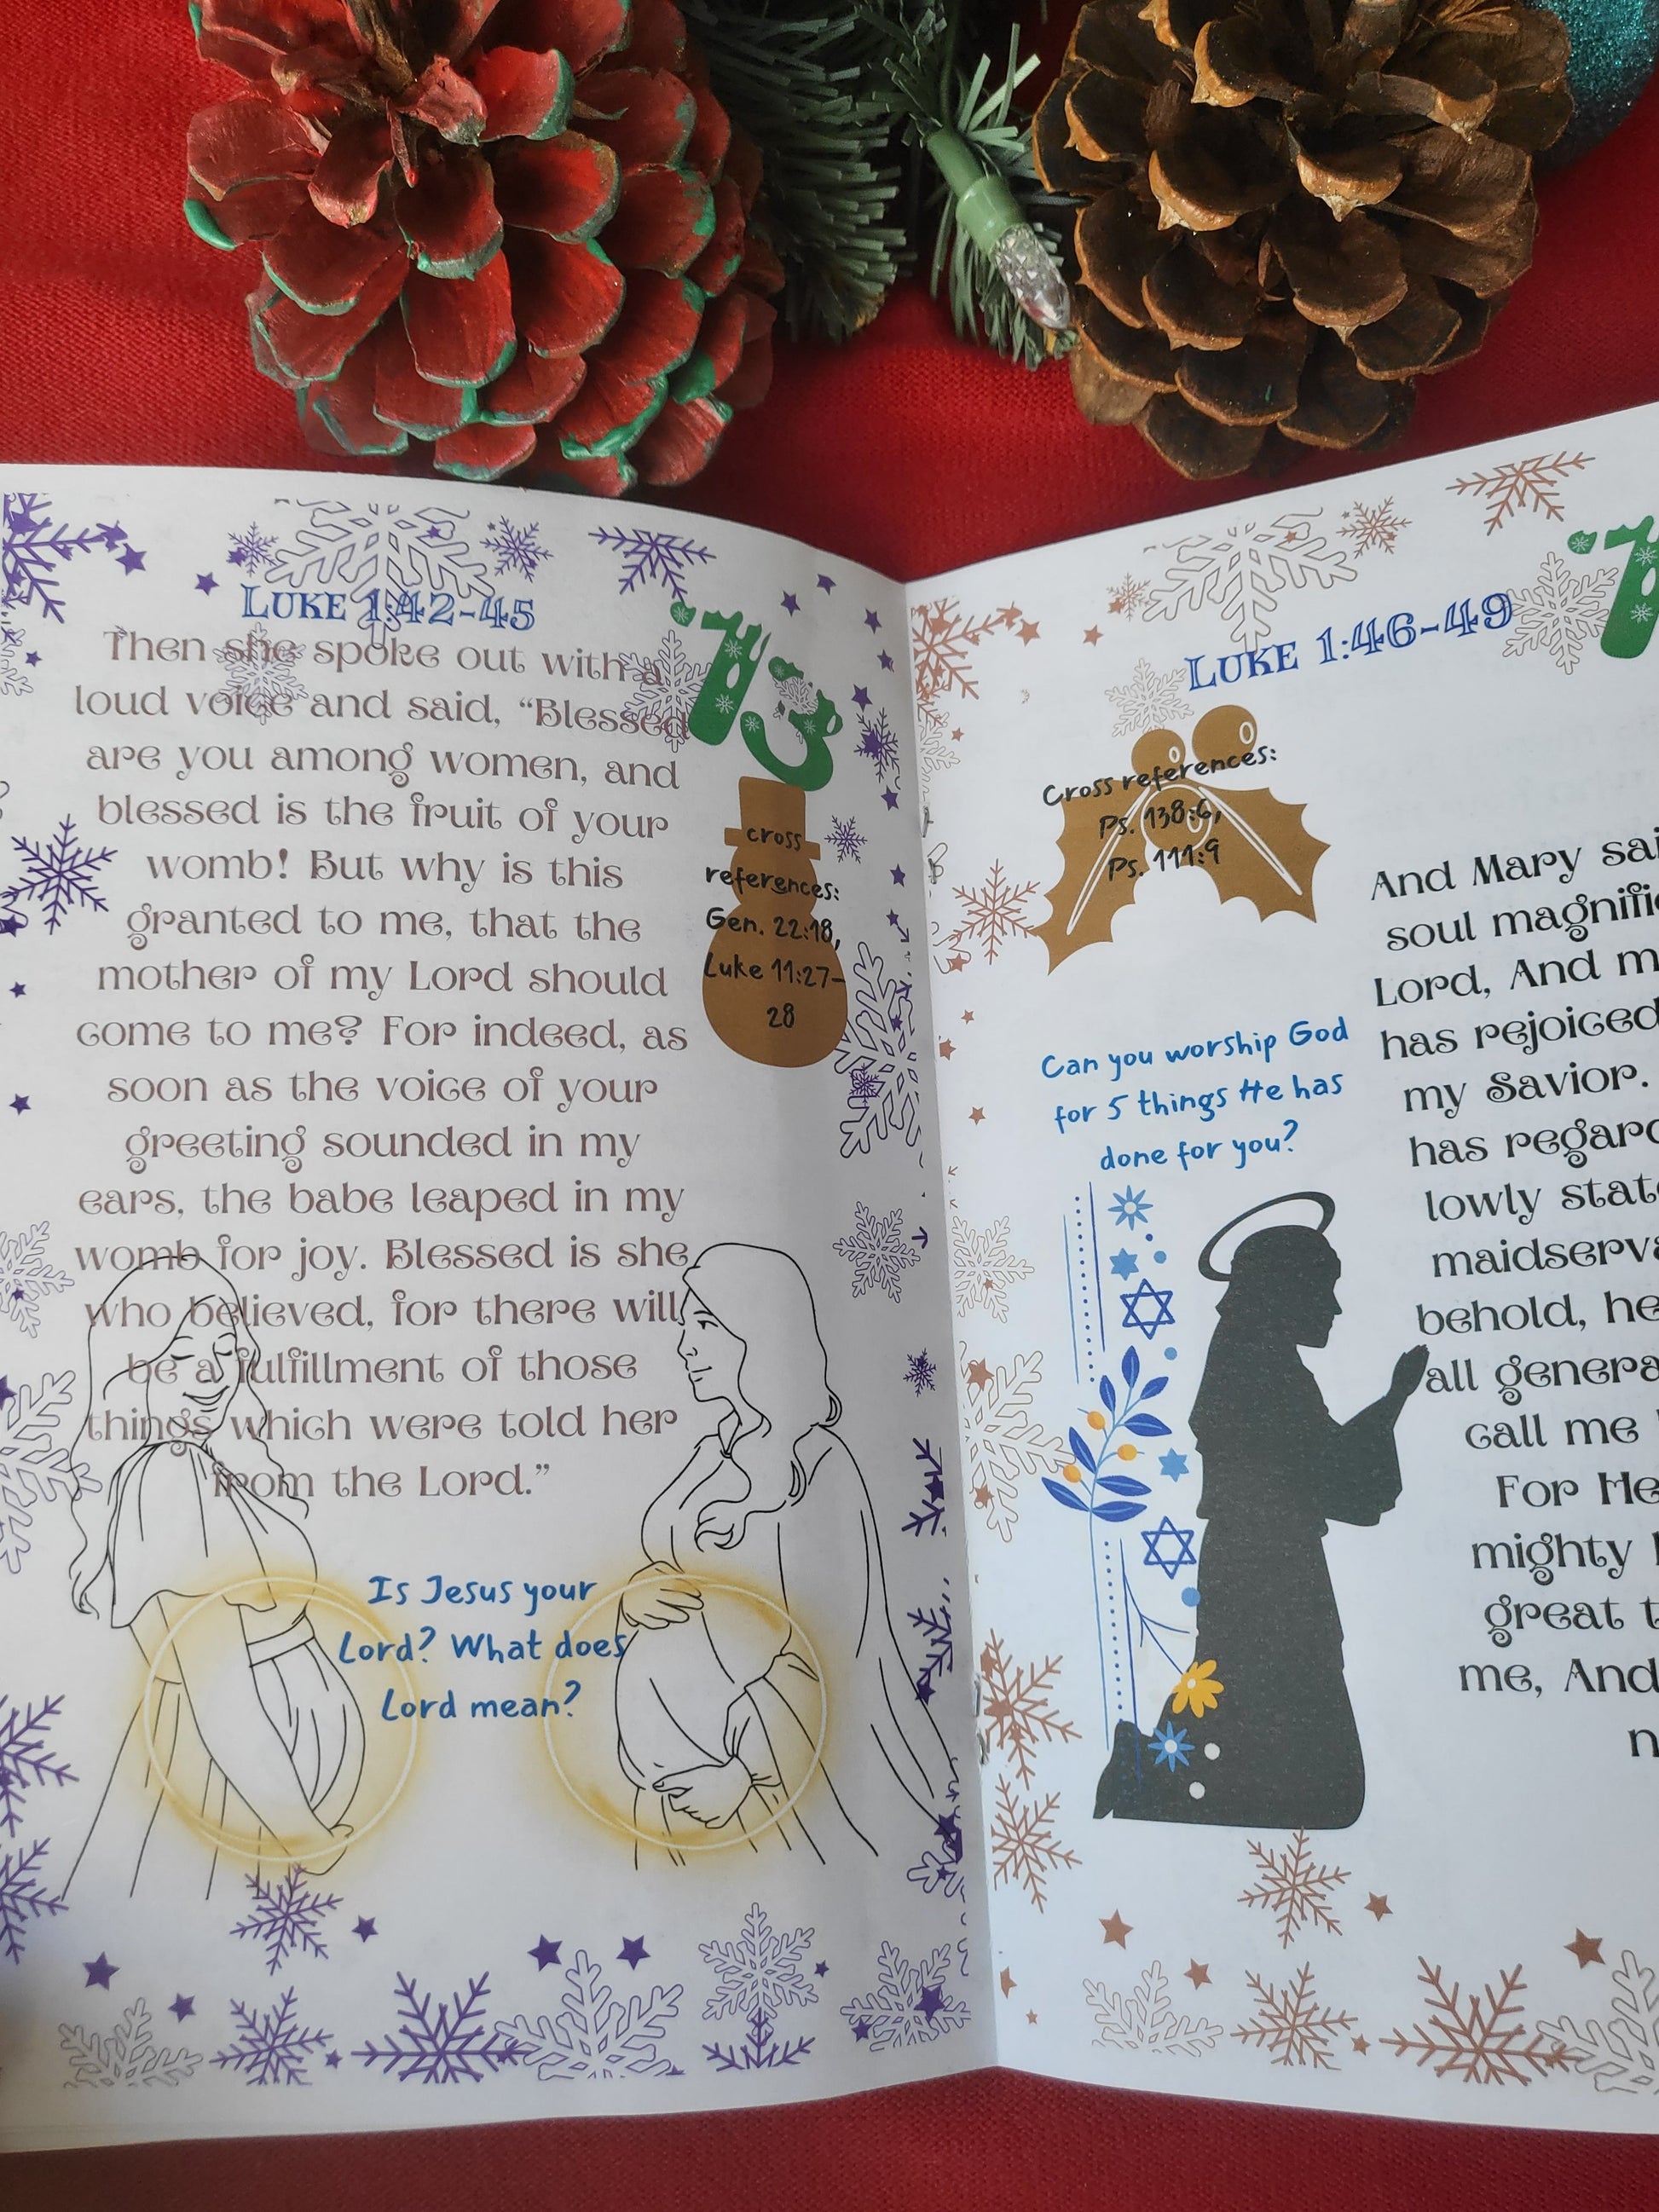 LUKE 1:42-45
13
Then she spoke out with a
loud voice and said, “Blessed
are you among women, and
blessed is the fruit of your
womb! But why is this
granted to me, that the
mother of my Lord should
come to me? For indeed, as
soon as the voice of your
greeting sounded in my
ears, the babe leaped in my
womb for joy. Blessed is she
who believed, for there will
be a fulfillment of those
things which were told her
from the Lord.”
cross
references:
Gen. 22:18,
Luke 11:27-
28
Is Jesus your
Lord? What does
Lord mean?
LUKE 1:46-49
1
Cross references:
Ps. 138:6,
Ps. 111:9
Can you worship God
for 5 things He has
done for you?
And Mary
soul
Lord, And
has rejoiced
my Savior.
has
lowly
behold,
all
call me
For He
mighty
great
me, And